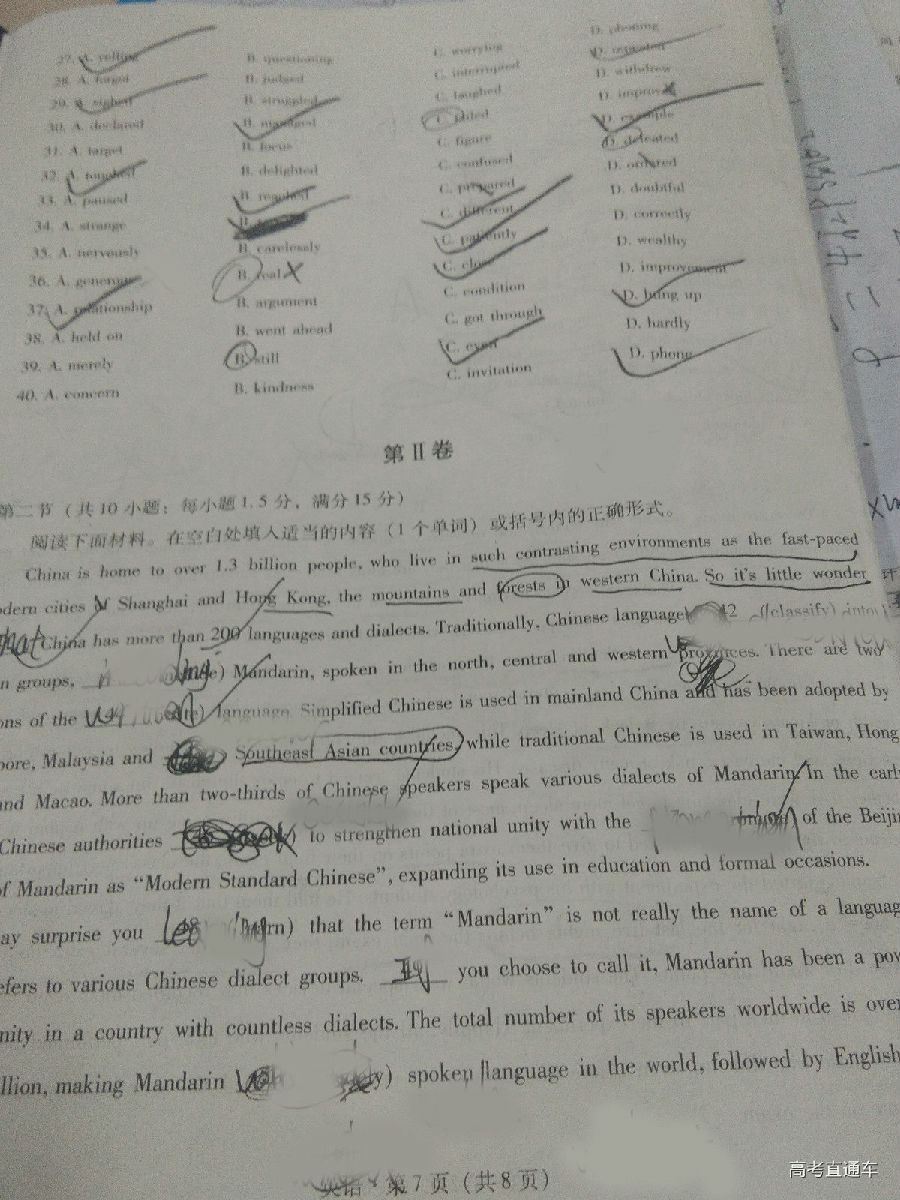 D. phoning
27. A. yelling B. questioning C. worrying
28. A. forgot B. judged C. interrupted D. withdrew
29. A. sighed B. struggled C. laughed D. improved
30. A. declared B. managed C. failed D. example
31. A. target B. focus C. figure D. defeated
32. A. touched B. delighted C. confused D. ordered
33. A. paused B. reached C. prepared D. doubtful
34. A. strange B. C. different D. correctly
35. A. nervously B. carelessly C. patiently D. wealthy
36. A. generous B. real C. close D. improvement
37. A. relationship B. argument C. condition D. hung up
38. A. held on B. went ahead C. got through D. hardly
39. A. merely B. still C. even D. phone
40. A. concern B. kindness C. invitation
第Ⅱ卷
第二节（共10小题；每小题1.5分，满分15分）
阅读下面材料。在空白处填入适当的内容（1个单词）或括号内的正确形式。
China is home to over 1.3 billion people, who live in such contrasting environments as the fast-paced
modern cities of Shanghai and Hong Kong, the mountains and forests in western China. So it's little wonder
that China has more than 200 languages and dialects. Traditionally, Chinese language 42 (classify) into
n groups, Mandarin, spoken in the north, central and western provinces. There are two
ons of the language. Simplified Chinese is used in mainland China and has been adopted by
pore, Malaysia and Southeast Asian countries, while traditional Chinese is used in Taiwan, Hong
and Macao. More than two-thirds of Chinese speakers speak various dialects of Mandarin. In the earl
Chinese authorities to strengthen national unity with the of the Beijin
of Mandarin as “Modern Standard Chinese”, expanding its use in education and formal occasions.
ay surprise you that the term “Mandarin” is not really the name of a languag
efers to various Chinese dialect groups. you choose to call it, Mandarin has been a pow
nity in a country with countless dialects. The total number of its speakers worldwide is over
llion, making Mandarin spoken language in the world, followed by English
英语 第7页（共8页）
高考直通车